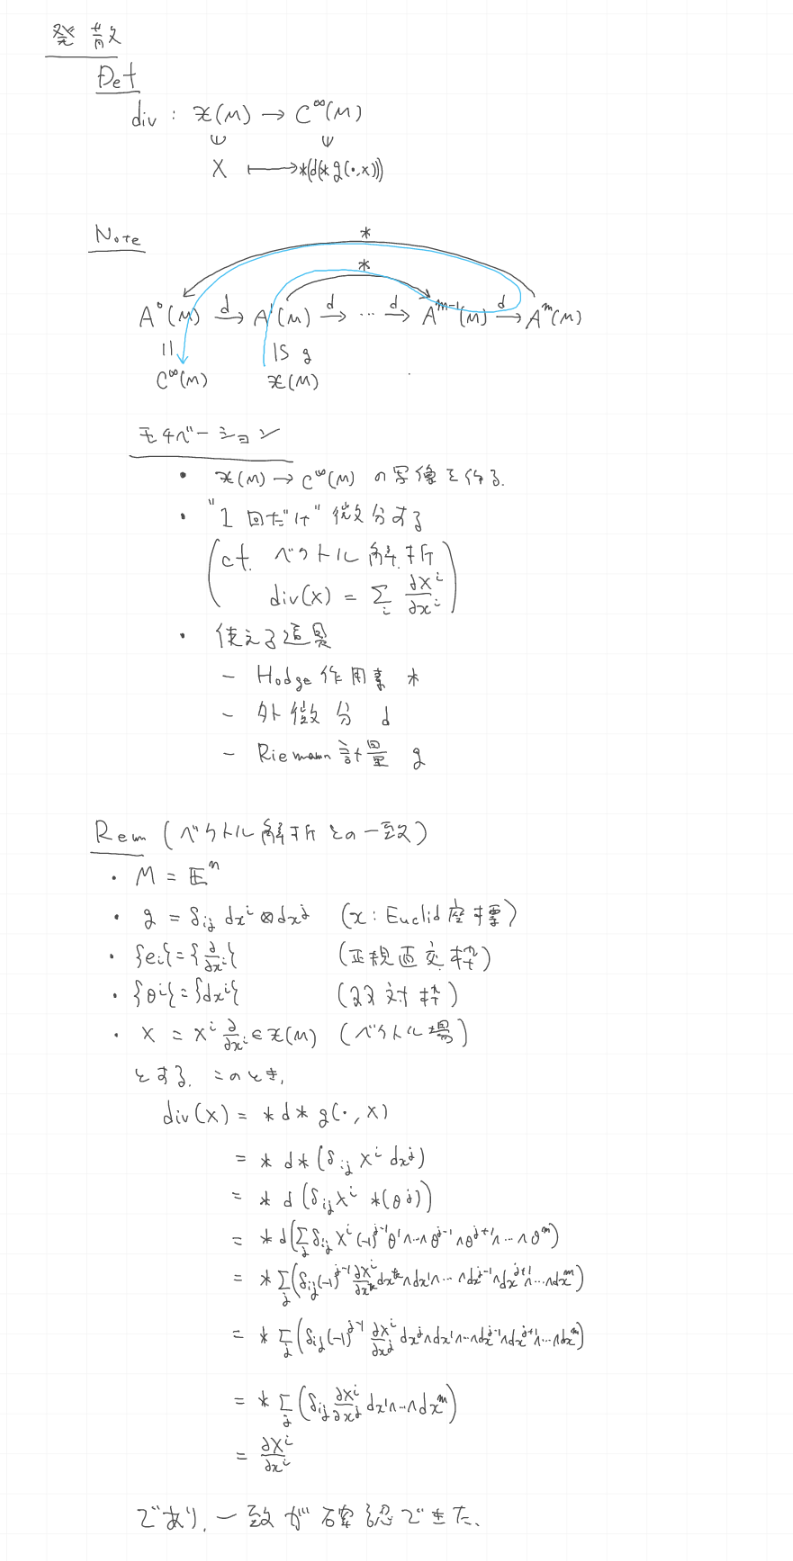 発散
Def
div : 𝔛(M) → C^∞(M)
∪ ∪
X ⟼ *(d(* g(・,X)))
Note
*
*
A^0(M) →^d A^1(M) →^d … →^d A^{m-1}(M) →^d A^m(M)
|| |S g
C^∞(M) 𝔛(M)
モチベーション
・ 𝔛(M) → C^∞(M) の写像を作る.
・ "1回だけ" 微分する
(cf. ベクトル解析
div(X) = Σ_i ∂X^i/∂x^i)
・ 使える道具
- Hodge作用素 *
- 外微分 d
- Riemann計量 g
Rem (ベクトル解析との一致)
・ M = 𝔼^m
・ g = δ_ij dx^i ⊗ dx^j (x : Euclid座標)
・ {e_i} = {∂/∂x^i} (正規直交枠)
・ {θ^i} = {dx^i} (双対枠)
・ X = X^i ∂/∂x^i ∈ 𝔛(M) (ベクトル場)
とする. このとき,
div(X) = * d * g(・, X)
= * d * (δ_ij X^i dx^j)
= * d (δ_ij X^i *(θ^j))
= * d(Σ_j δ_ij X^i (-1)^{j-1} θ^1∧…∧θ^{j-1}∧θ^{j+1}∧…∧θ^m)
= * Σ_j (δ_ij (-1)^{j-1} ∂X^i/∂x^k dx^k∧dx^1∧…∧dx^{j-1}∧dx^{j+1}∧…∧dx^m)
= * Σ_j (δ_ij (-1)^{j-1} ∂X^i/∂x^j dx^j∧dx^1∧…∧dx^{j-1}∧dx^{j+1}∧…∧dx^m)
= * Σ_j (δ_ij ∂X^i/∂x^j dx^1∧…∧dx^m)
= ∂X^i/∂x^i
であり, 一致が確認できた.